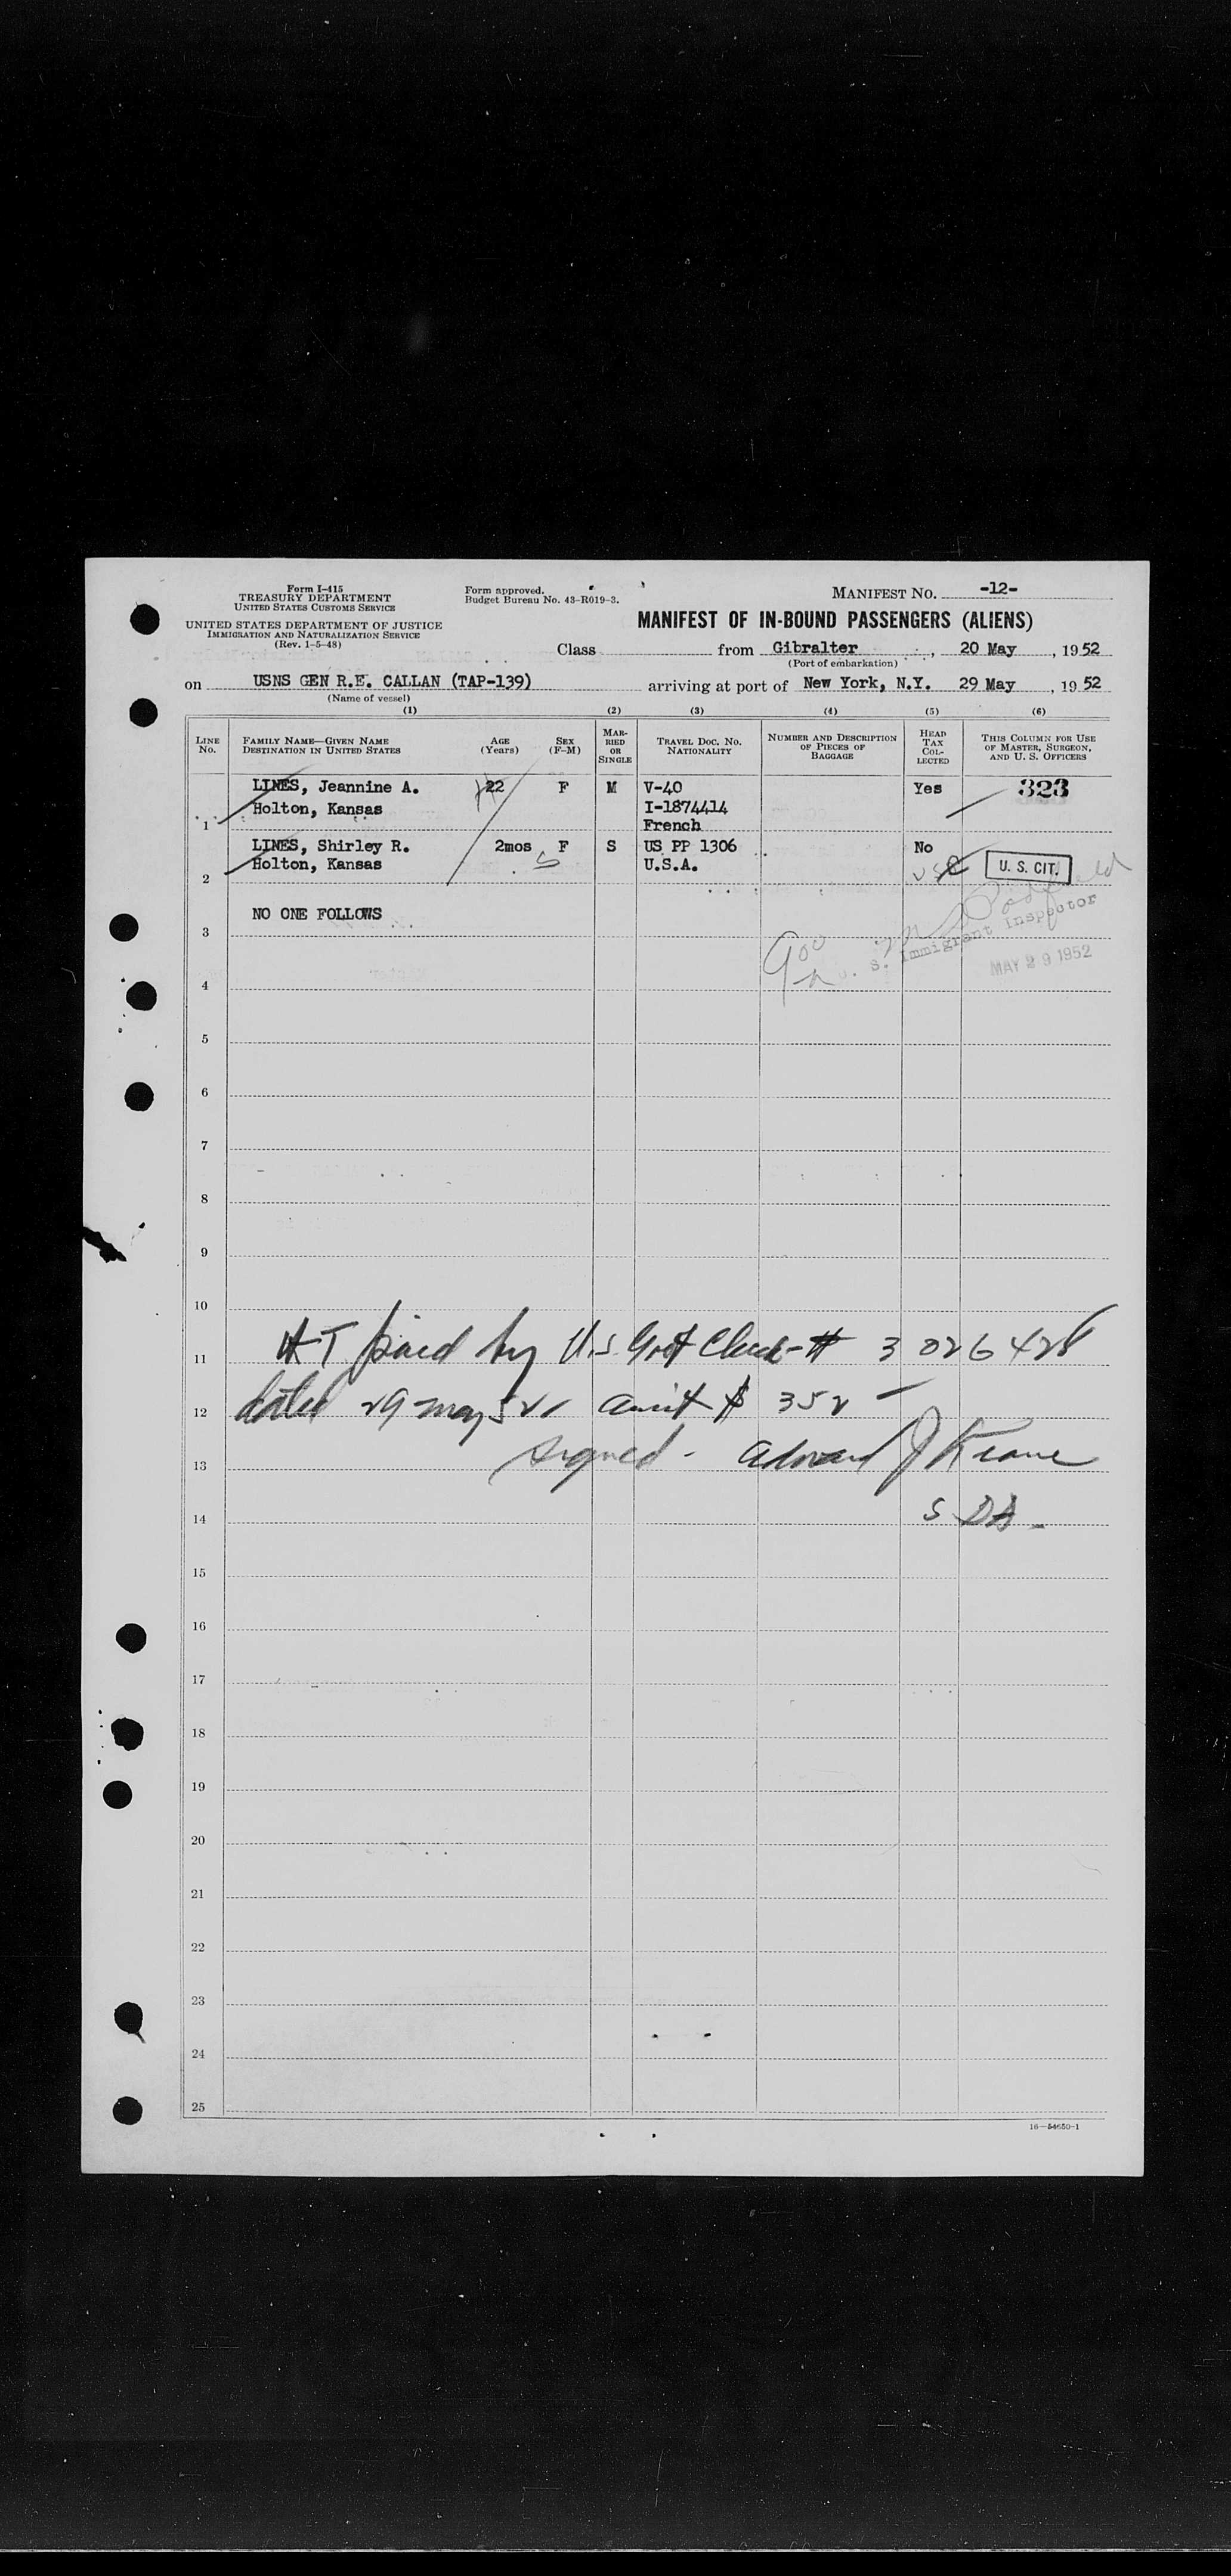 Form I-415
TREASURY DEPARTMENT
UNITED STATES CUSTOMS SERVICE
UNITED STATES DEPARTMENT OF JUSTICE
IMMIGRATION AND NATURALIZATION SERVICE
(Rev. 1-5-48)
Form approved.
Budget Bureau No. 43-R019-3.
MANIFEST NO. -12-
MANIFEST OF IN-BOUND PASSENGERS (ALIENS)
Class from Gibralter, 20 May, 1952
(Port of embarkation)
on USNS GEN R.E. CALLAN (TAP-139) arriving at port of New York, N.Y. 29 May, 1952
(Name of vessel)
(1) (2) (3) (4) (5) (6)
LINE NO. FAMILY NAME—GIVEN NAME DESTINATION IN UNITED STATES AGE (Years) SEX (F-M) MARRIED OR SINGLE TRAVEL DOC. NO. NATIONALITY NUMBER AND DESCRIPTION OF PIECES OF BAGGAGE HEAD TAX COLLECTED THIS COLUMN FOR USE OF MASTER, SURGEON, AND U. S. OFFICERS
LINES, Jeannine A. 22 F M V-40 Yes 323
Holton, Kansas I-1874414
1 French
LINES, Shirley R. 2mos F S US PP 1306 No
Holton, Kansas U.S.A. USC U. S. CIT.
2
NO ONE FOLLOWS
3
S. Immigrant Inspector
MAY 29 1952
4
5
6
7
8
9
10
11 HT paid by U.S. Govt Check # 3026428
12 dated 29 May 52 amt $ 352 —
13 signed - Edward J Keane
14 S DA -
15
16
17
18
19
20
21
22
23
24
25
16—54650-1